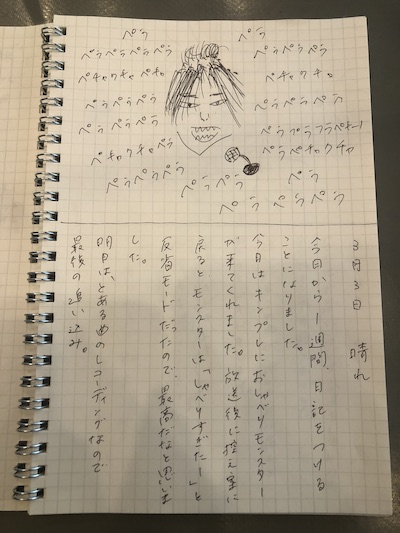 ペラ
ペラ
ペラペラペラ
ペラペラペラ
ペチャクチャペチャ
ペチャクチャ
ペラペラペラ
ペラペラペラ
ペラ ペラペラ
ペチャクチャペラ
ペラペチャクチャ
ペラペラペラ
ペラペラ
ペラ
ペラ ペラ
ペラ ペラ
3月3日 晴れ
今日から一週間、日記をつける
ことになりました。
今日はキンプレにおしゃべりモンスター
が来てくれました。放送後に控え室に
戻るとモンスターは「しゃべりすぎたー」と
反省モードだったので、最高だなと思いま
した。
明日は、とある曲のレコーディングなので
最後の追い込み。